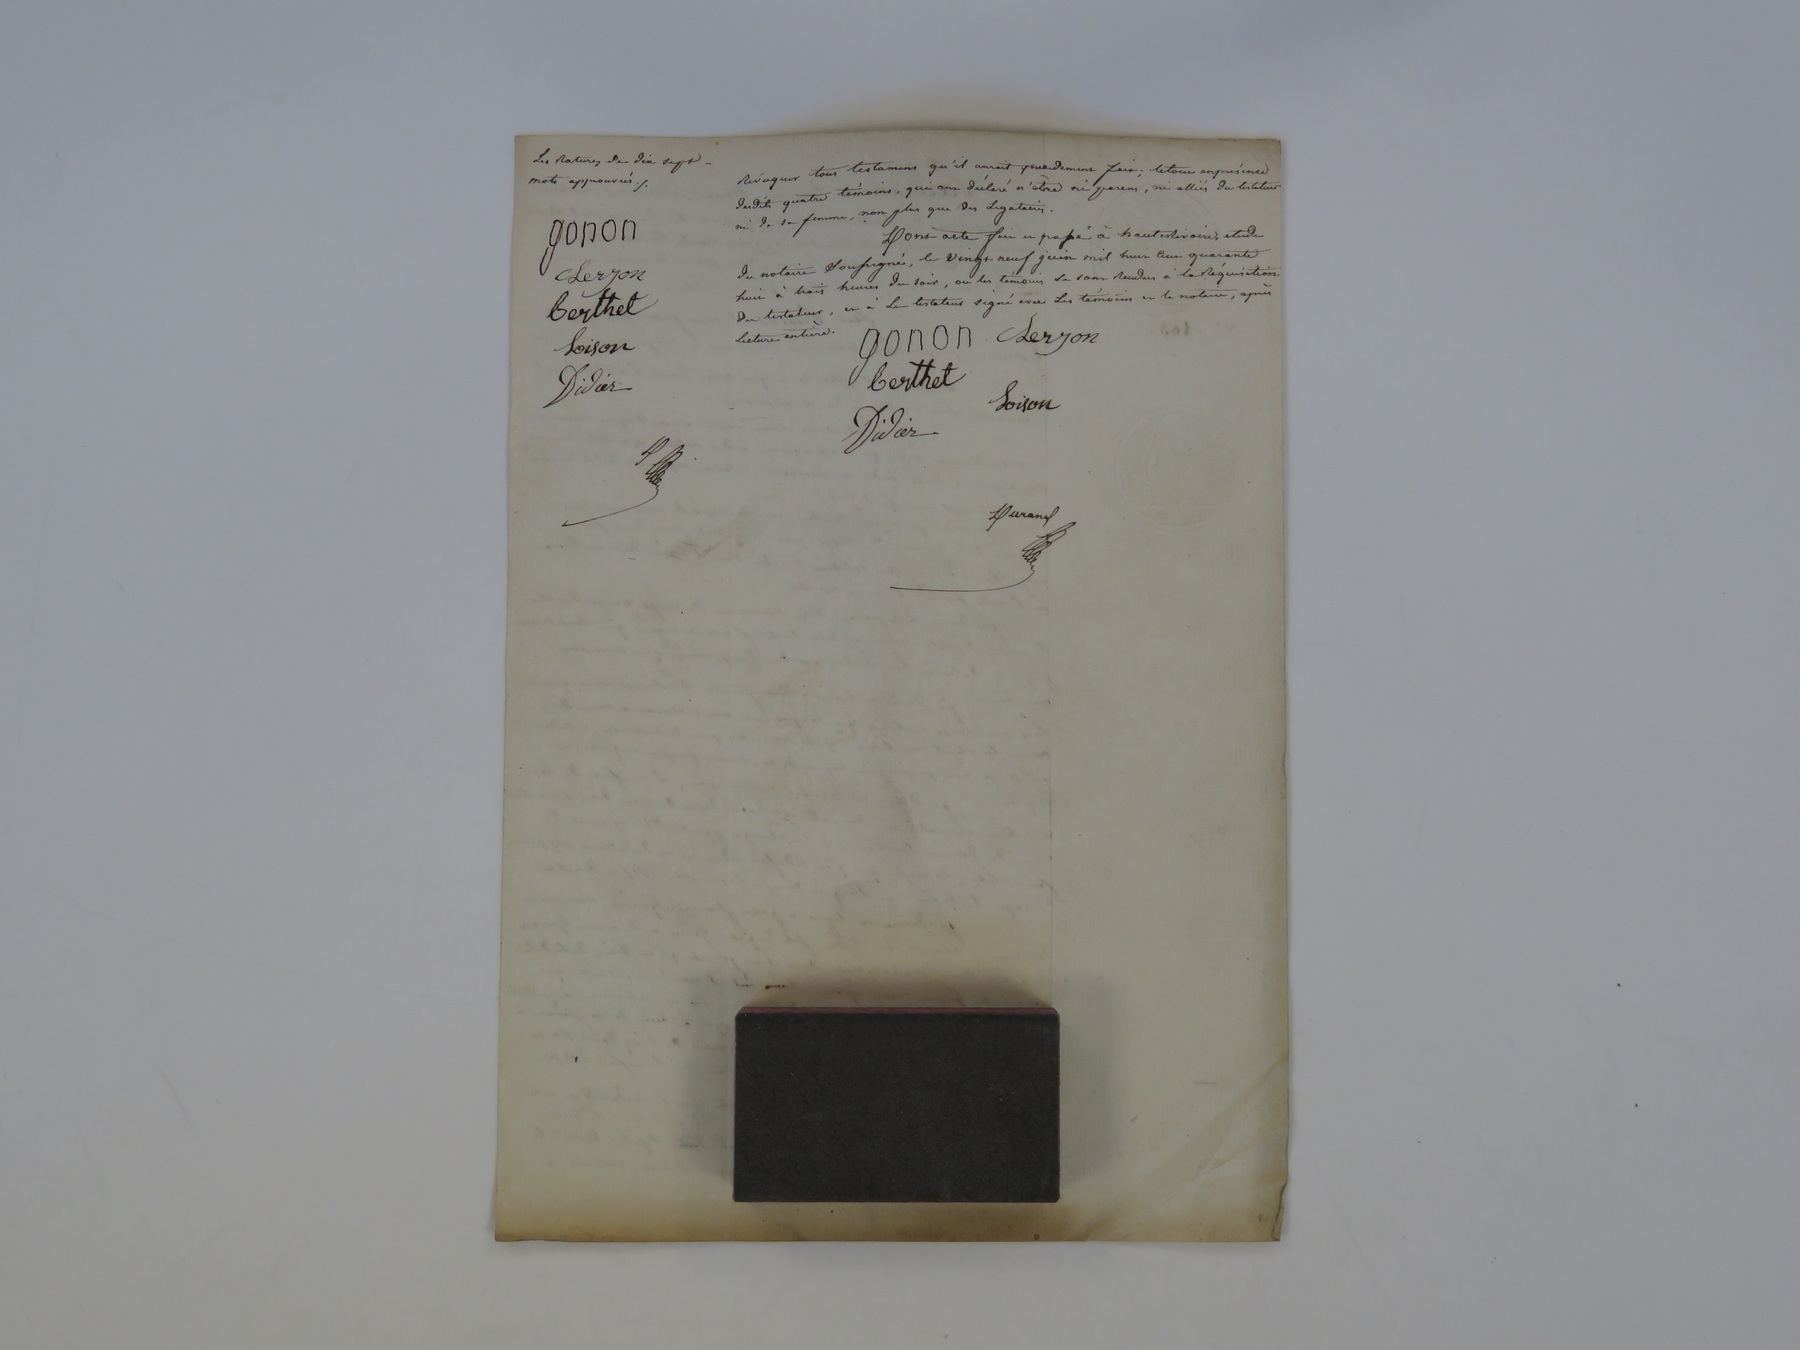 Les ratures de dix sept
mots approuvées ./.
gonon
Clerjon
Berthet
Loison
Didier
Révoquer tous testamens qu'il aurait précedemment fait; le tout en présence
desdits quatre témoins, qui ont déclaré n'être ni parens, ni alliés du testateur
ni de sa femme, non plus que des Légataires.
Dont acte fait et passé à hauterivoire, étude
du notaire soussigné, le vingt neuf juin mil huit cent quarante
huit à trois heures du soir, ou les témoins se sont rendus à la Réquisition
du testateur, et à le testateur signé avec les témoins et le notaire, après
lecture entière.
gonon Clerjon
Berthet
Loison
Didier
Durand